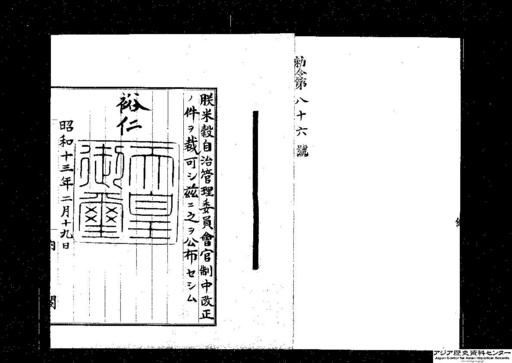 勅令第八十六號
朕米穀自治管理委員會官制中改正
ノ件ヲ裁可シ茲ニ之ヲ公布セシム
裕仁
天皇
御璽
昭和十三年二月十九日
内閣
アジア歴史資料センター
Japan Center for Asian Historical Records